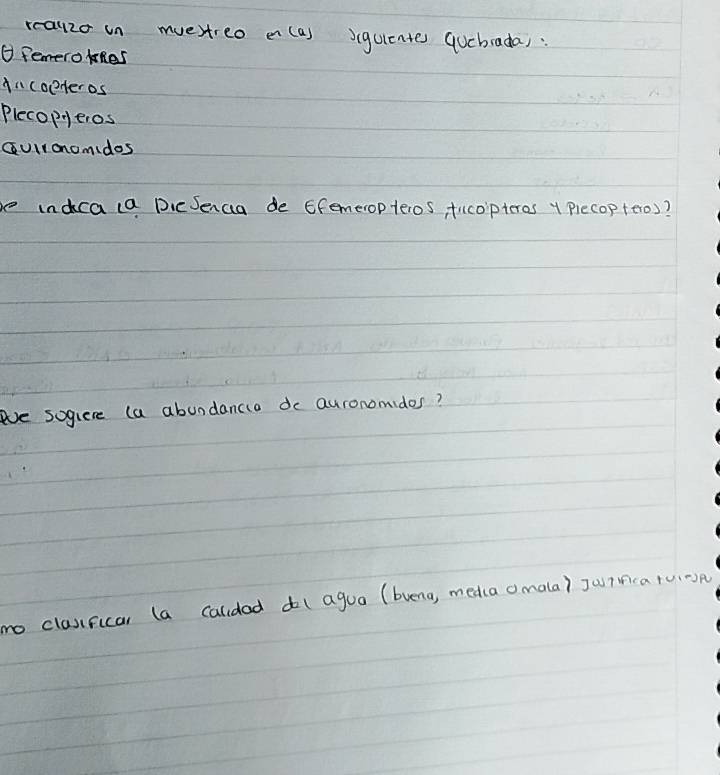 realizo un muestreo en las siguientes quebradas:
Efemeropteros
tricopteros
Plecopteros
Quironomidos
e indica la presencia de Efemeropteros, tricopteros y plecopteros?
Que sugiere la abundancia de quironomidos?
mo clasificar la calidad del agua (buena, media o mala) Justifica tu